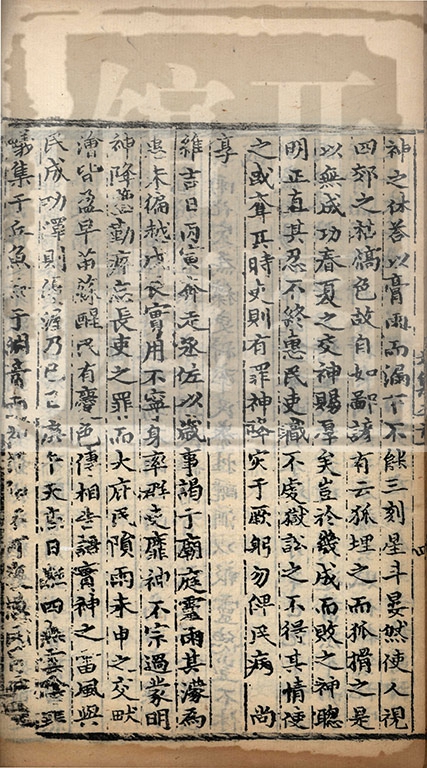 神之休荅以膏雨而漏下不能三刻星斗晏然使人視
四郊之稻槁色故自如鄙諺有云狐埋之而狐搰之是
以無成功春夏之交神賜厚矣豈於幾成而敗之神聰
明正直其忍不終惠民吏職不虔獄訟之不得其情使
之或奪其時吏則有罪神降灾于厥躬勿俾民病尚
享
維吉日丙寅奔走丞佐以歲事謁于廟庭靈雨其濛焉
惠未徧越戊辰實用不寧身率群吏靡神不宗過蒙明
神降鑒勤瘁忘長吏之罪而大府民隕雨未申之交畎
澮皆盈旱苗蘇醒民有慶色傳相告語膏神之畱風與
民成功澤則終渥乃己巳庚午天杲日無四
蟻集于丘魚